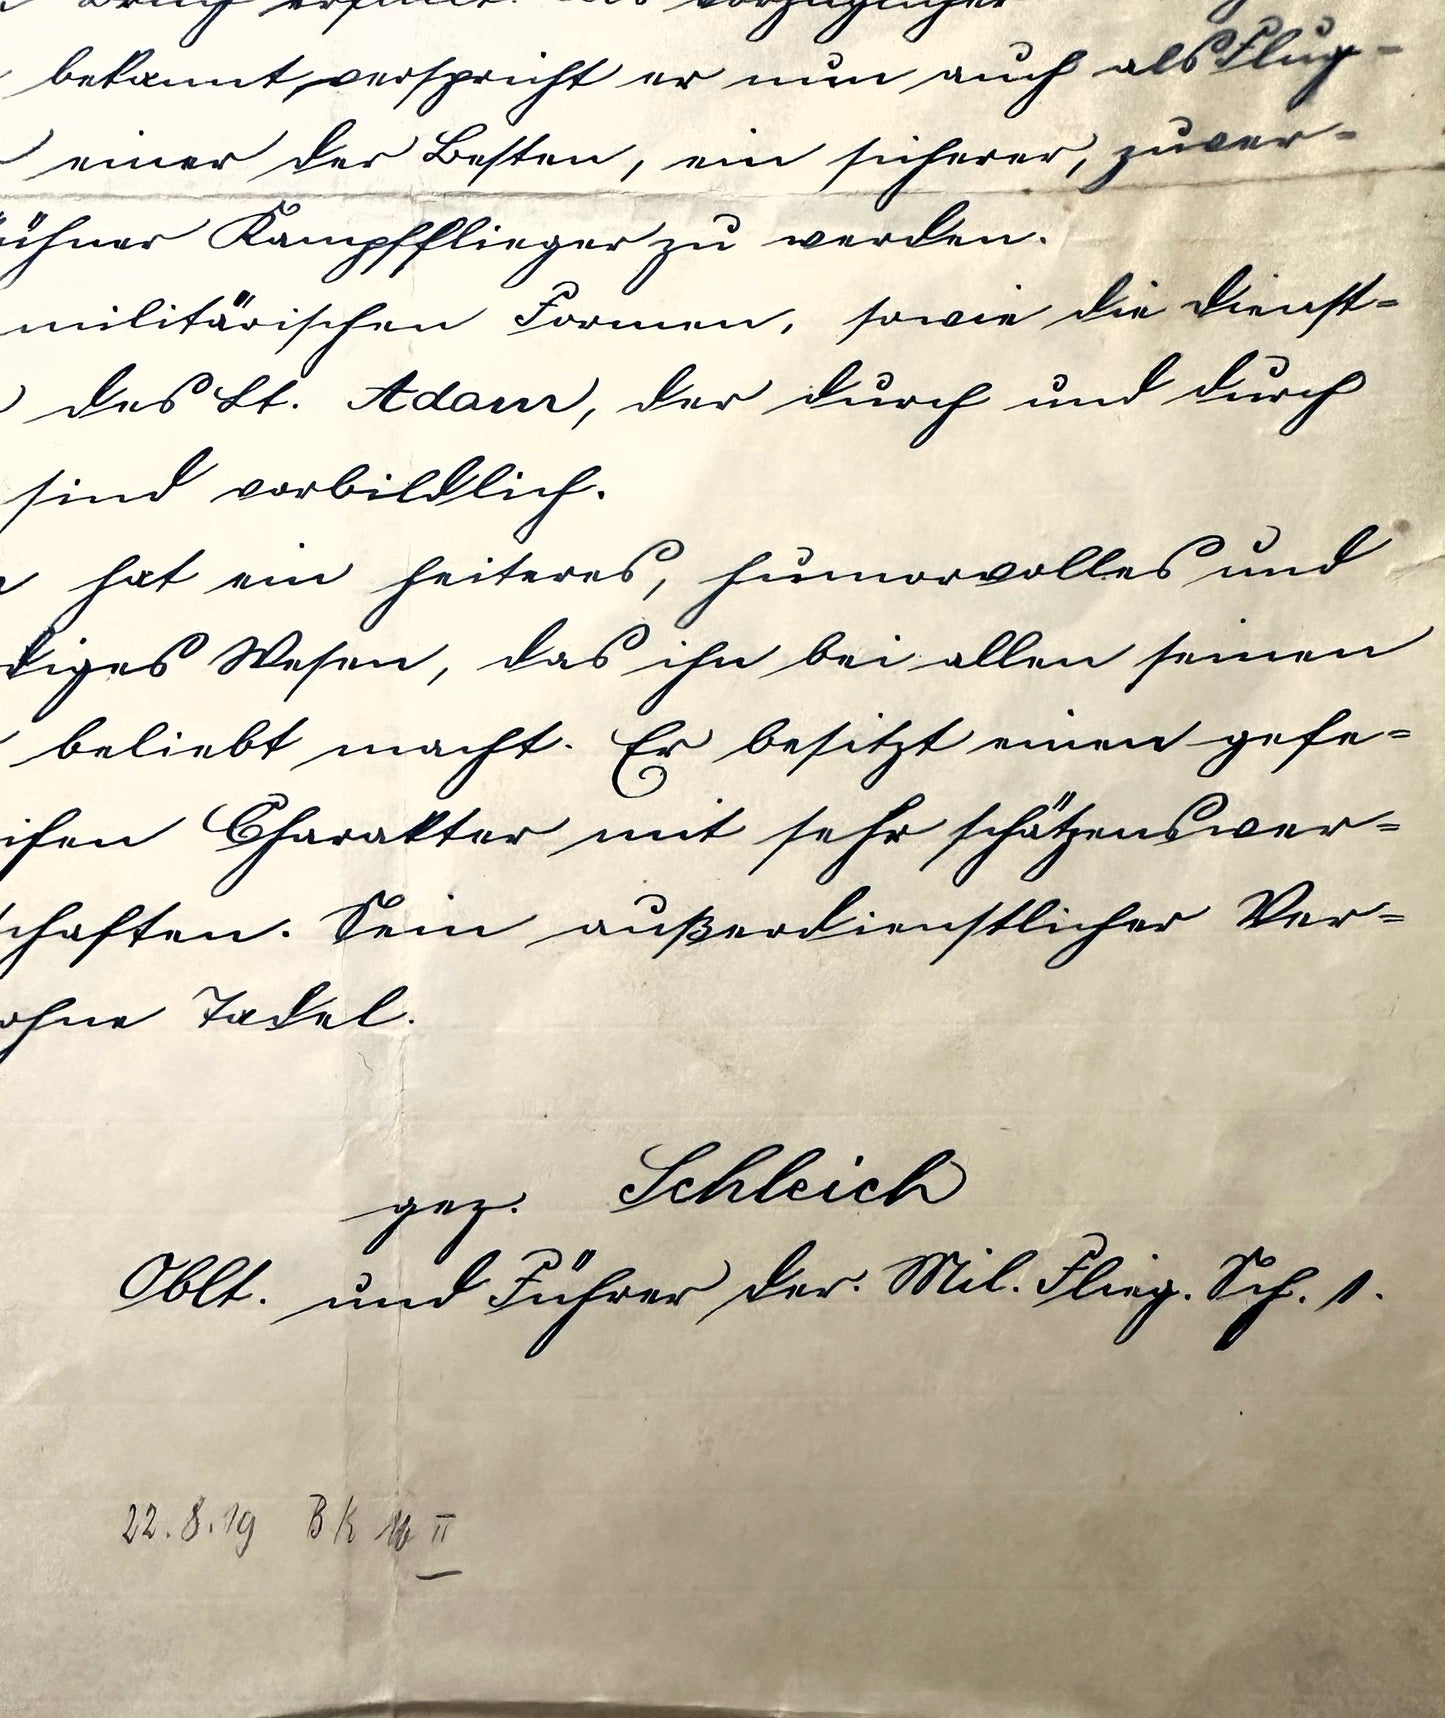 Bruch erfüllt. Als vorzüglicher
bekannt, verspricht er nun auch als Flug-
einer der Besten, ein sicherer, zuver-
kühner Kampfflieger zu werden.
militärischen Formen, sowie die dienst-
des Lt. Adam, der durch und durch
sind vorbildlich.
hat ein heiteres, humorvolles und
diges Wesen, das ihn bei allen seinen
beliebt macht. Er besitzt einen gefe-
ifen Charakter mit sehr schätzenswer-
schaften. Sein außerdienstlicher Ver-
ohne Tadel.
gez. Schleich
Oblt. und Führer der Mil. Flieg. Sch. 1.
22.8.19 BK II